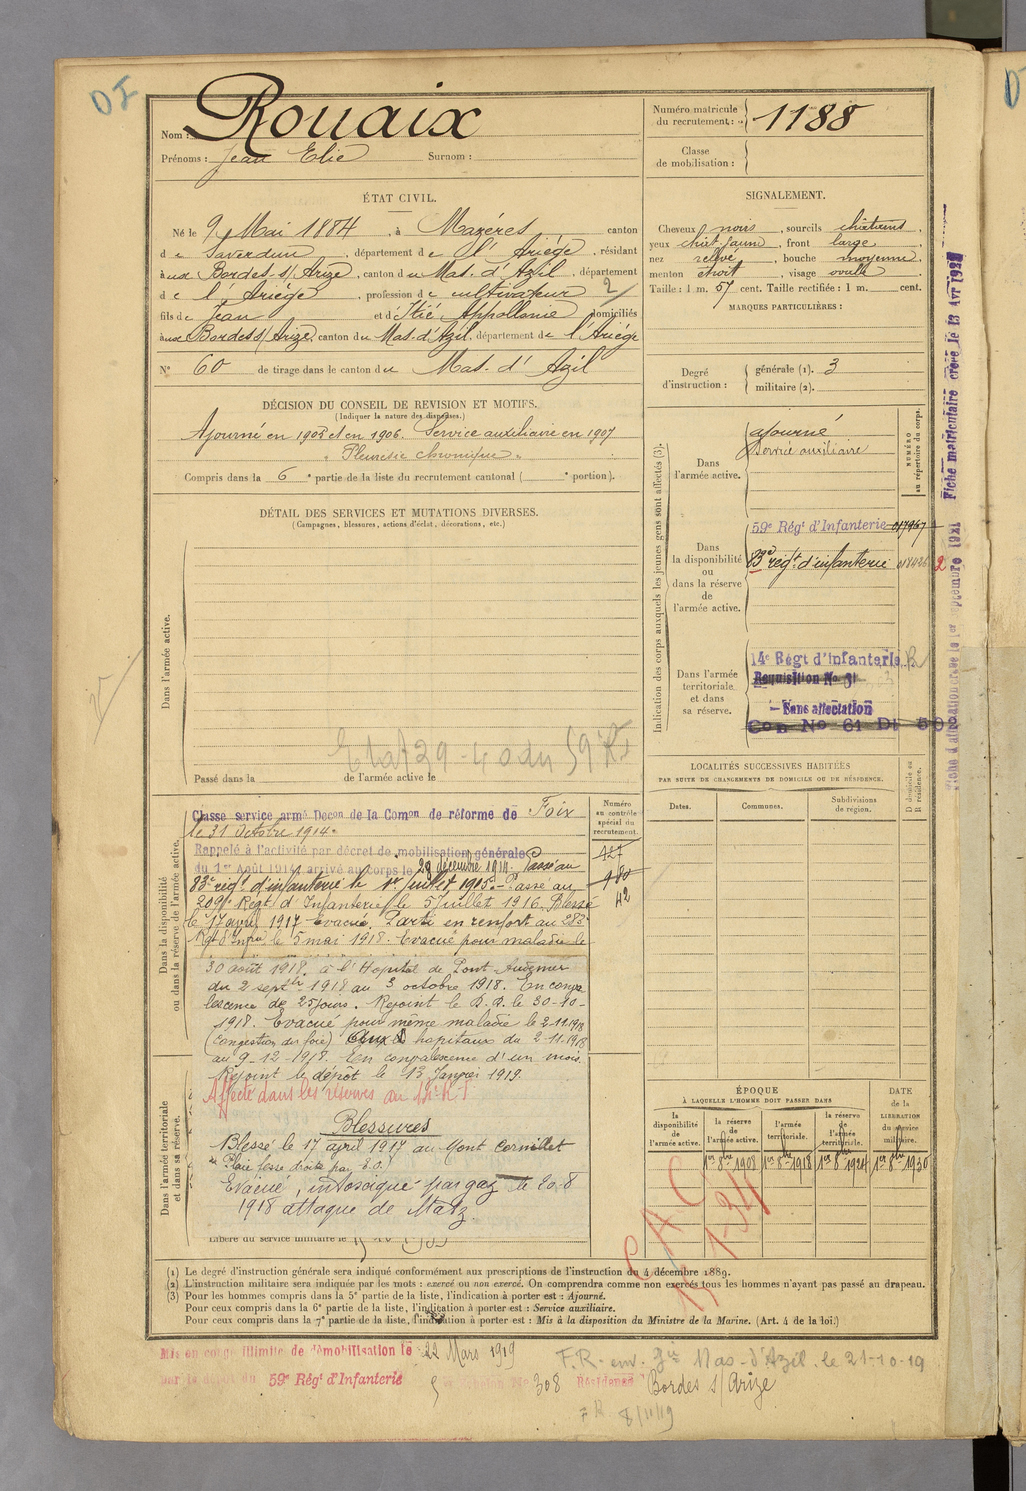 DI
Nom : Rouaix
Prénoms : Jean Elie Surnom :
Numéro matricule du recrutement : 1188
Classe de mobilisation :
ÉTAT CIVIL.
Né le 9 Mai 1884, à Mazères canton
de Saverdun, département de l'Ariège, résidant
à aux Bordes-s/Arize, canton du Mas-d'Azil, département
de l'Ariège, profession de cultivateur 2/
fils de Jean et d'Itié Appollonie domiciliés
à aux Bordes s/Arize, canton du Mas-d'Azil, département de l'Ariège
N° 60 de tirage dans le canton du Mas-d'Azil
SIGNALEMENT.
Cheveux noirs, sourcils châtains,
yeux chât. jaune, front large,
nez relevé, bouche moyenne,
menton étroit, visage ovale
Taille : 1 m. 57 cent. Taille rectifiée : 1 m. cent.
MARQUES PARTICULIÈRES :
Degré d'instruction : générale (1). 3
militaire (2).
DÉCISION DU CONSEIL DE REVISION ET MOTIFS.
(Indiquer la nature des dispenses.)
Ajourné en 1905 et en 1906. Service auxiliaire en 1907
"Pleurésie chronique".
Compris dans la 6e partie de la liste du recrutement cantonal ( e portion).
DÉTAIL DES SERVICES ET MUTATIONS DIVERSES.
(Campagnes, blessures, actions d'éclat, décorations, etc.)
Dans l'armée active.
Etat 39-40 du 59 RI
Passé dans la de l'armée active le
Indication des corps auxquels les jeunes gens sont affectés (3).
NUMÉRO au répertoire du corps.
Dans l'armée active.
ajourné
Service auxiliaire
Dans la disponibilité ou dans la réserve de l'armée active.
59e Régt d'Infanterie 017967
83e régt d'infanterie 018426 2
Dans l'armée territoriale et dans sa réserve.
14e Régt d'Infanterie R
Requisition No 31
Sans affectation
Con No 61 Dt 502
Fiche matriculaire créée le 13 Avr 1928
LOCALITÉS SUCCESSIVES HABITÉES
PAR SUITE DE CHANGEMENTS DE DOMICILE OU DE RÉSIDENCE.
Dates. Communes. Subdivisions de région. D domicile ou R résidence.
Dans la disponibilité ou dans la réserve de l'armée active.
Numéro au contrôle spécial du recrutement.
127
180
42
Classé service armé Decon de la Comon de réforme de Foix
le 31 Octobre 1914.
Rappelé à l'activité par décret de mobilisation générale
du 1er Août 1914 arrivé au corps le 28 décembre 1914. Passé au
83e régt d'infanterie le 1er Juillet 1915. Passé au
209e Régt d'Infanterie le 5 Juillet 1916. Blessé
le 17 avril 1917 Evacué. Parti en renfort au 283e
Rgt d'Infrie le 5 mai 1918. Evacué pour maladie le
30 août 1918. à l'Hopital de Pont-Audemer
du 2 septbre 1918 au 3 octobre 1918. En conva
lescence de 25 jours. Rejoint le D.D. le 30-10-
1918. Evacué pour même maladie le 2-11-1918
(Congestion du foie) Aux hopitaux du 2-11-1918
au 9-12-1918. En convalescence d'un mois.
Rejoint le dépôt le 13 Janvier 1919.
Affecté dans les réserves au 14e R I
Dans l'armée territoriale et dans sa réserve.
Blessures
Blessé le 17 avril 1917 au Mont Cornillet
"Plaie fesse droite par E.O."
Evacué, intoxiqué par gaz le 20-8
1918 attaque de Matz.
Libéré du service militaire le
ÉPOQUE
À LAQUELLE L'HOMME DOIT PASSER DANS
la disponibilité de l'armée active.
la réserve de l'armée active.
l'armée territoriale.
la réserve de l'armée territoriale.
DATE de la LIBÉRATION du service militaire.
1er 8bre 1908 1er 8bre 1918 1er 8bre 1924 1er 8bre 1930
CAC
(1) Le degré d'instruction générale sera indiqué conformément aux prescriptions de l'instruction du 4 décembre 1889.
(2) L'instruction militaire sera indiquée par les mots : exercé ou non exercé. On comprendra comme non exercés tous les hommes n'ayant pas passé au drapeau.
(3) Pour les hommes compris dans la 5e partie de la liste, l'indication à porter est : Ajourné.
Pour ceux compris dans la 6e partie de la liste, l'indication à porter est : Service auxiliaire.
Pour ceux compris dans la 7e partie de la liste, l'indication à porter est : Mis à la disposition du Ministre de la Marine. (Art. 4 de la loi.)
Mis en congé illimité de démobilisation le 22 Mars 1919
par le dépôt du 59e Régt d'Infanterie
5e échelon No 308 Résidence Bordes s/Arize
F.R. env. Gie Mas-d'Azil. le 21-10-19
FR 8/11/19